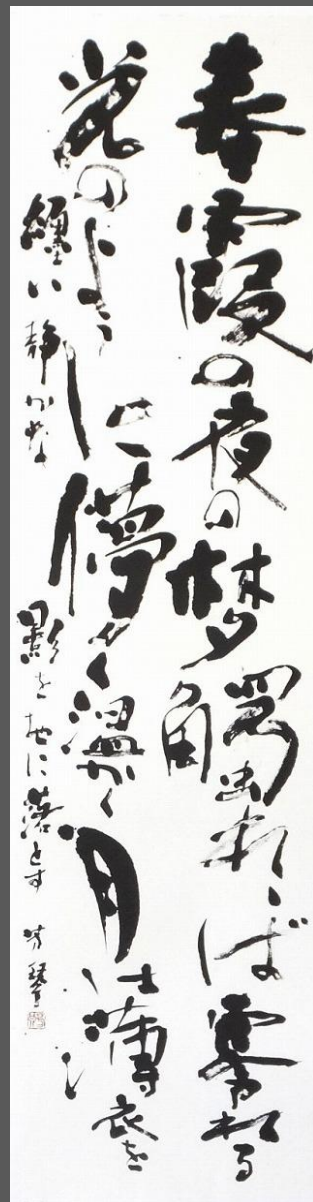 春霞の夜の夢觸れれば零れる
花のように儚く温かく月は薄衣を
纏い静かな影を地に落とす